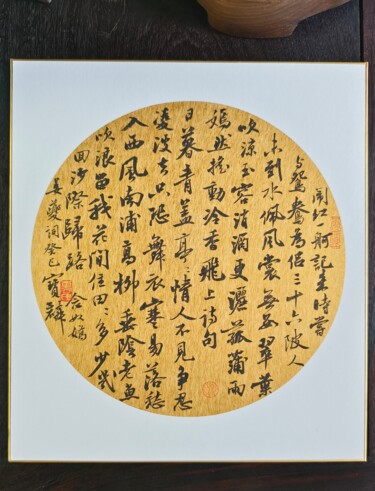 闹红一舸記来時嘗
与鴛鴦為侣三十六陂人
未到水佩風裳無数翠葉
吹涼玉容消酒更灑菰蒲雨
嫣然摇動冷香飛上诗句
日暮青盖亭〻情人不見争忍
凌波去只恐舞衣寒易落愁
入西風南浦高柳垂陰老魚
吹浪留我花间住田〻多少幾
回沙際歸路 念奴嬌
姜夔词癸巳寶麟